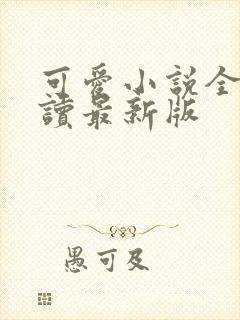 可愛小説全
讀最新版
愚可及